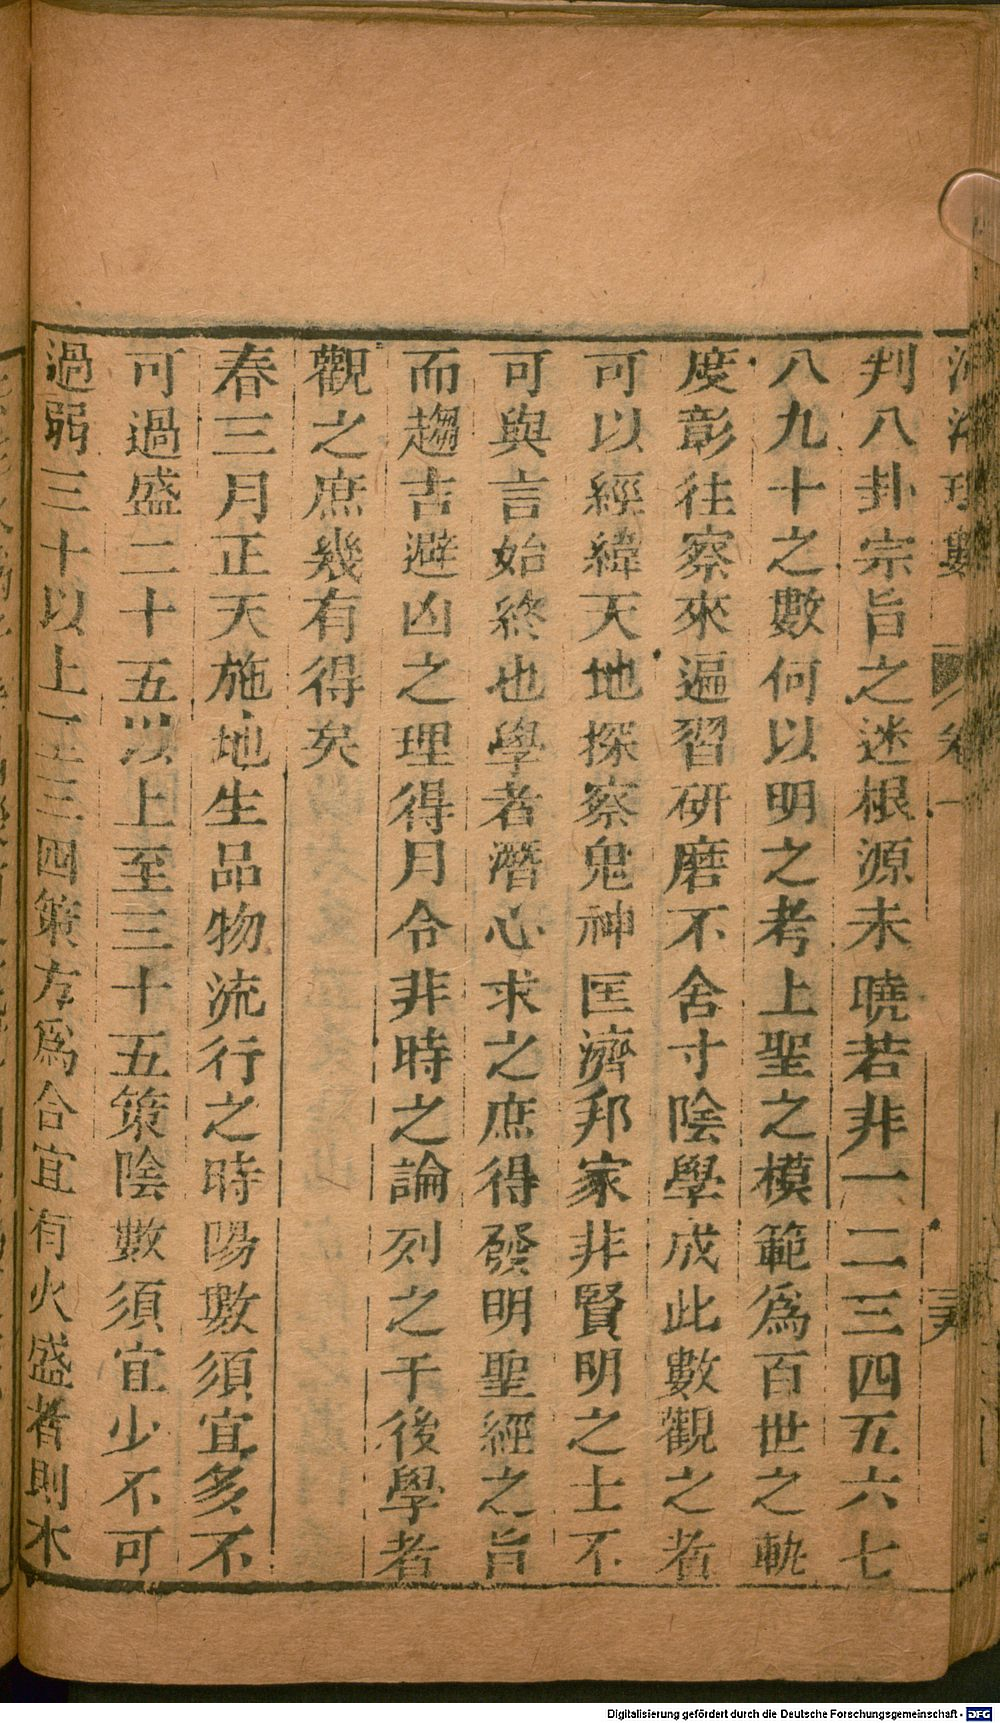 河洛理數 卷一
判八卦宗旨之迷根源未曉若非一二三四五六七
八九十之數何以明之考上聖之模範爲百世之軌
度彰往察來遍習研磨不舍寸陰學成此數觀之者
可以經緯天地探察鬼神匡濟邦家非賢明之士不
可與言始終也學者潛心求之庶得發明聖經之旨
而趨吉避凶之理得月令非時之論列之于後學者
觀之庶幾有得矣
春三月正天施地生品物流行之時陽數須宜多不
可過盛二十五以上至三十五策陰數須宜少不可
過弱三十以上一二三四策方爲合宜有火盛者則木
Digitalisierung gefördert durch die Deutsche Forschungsgemeinschaft - DFG